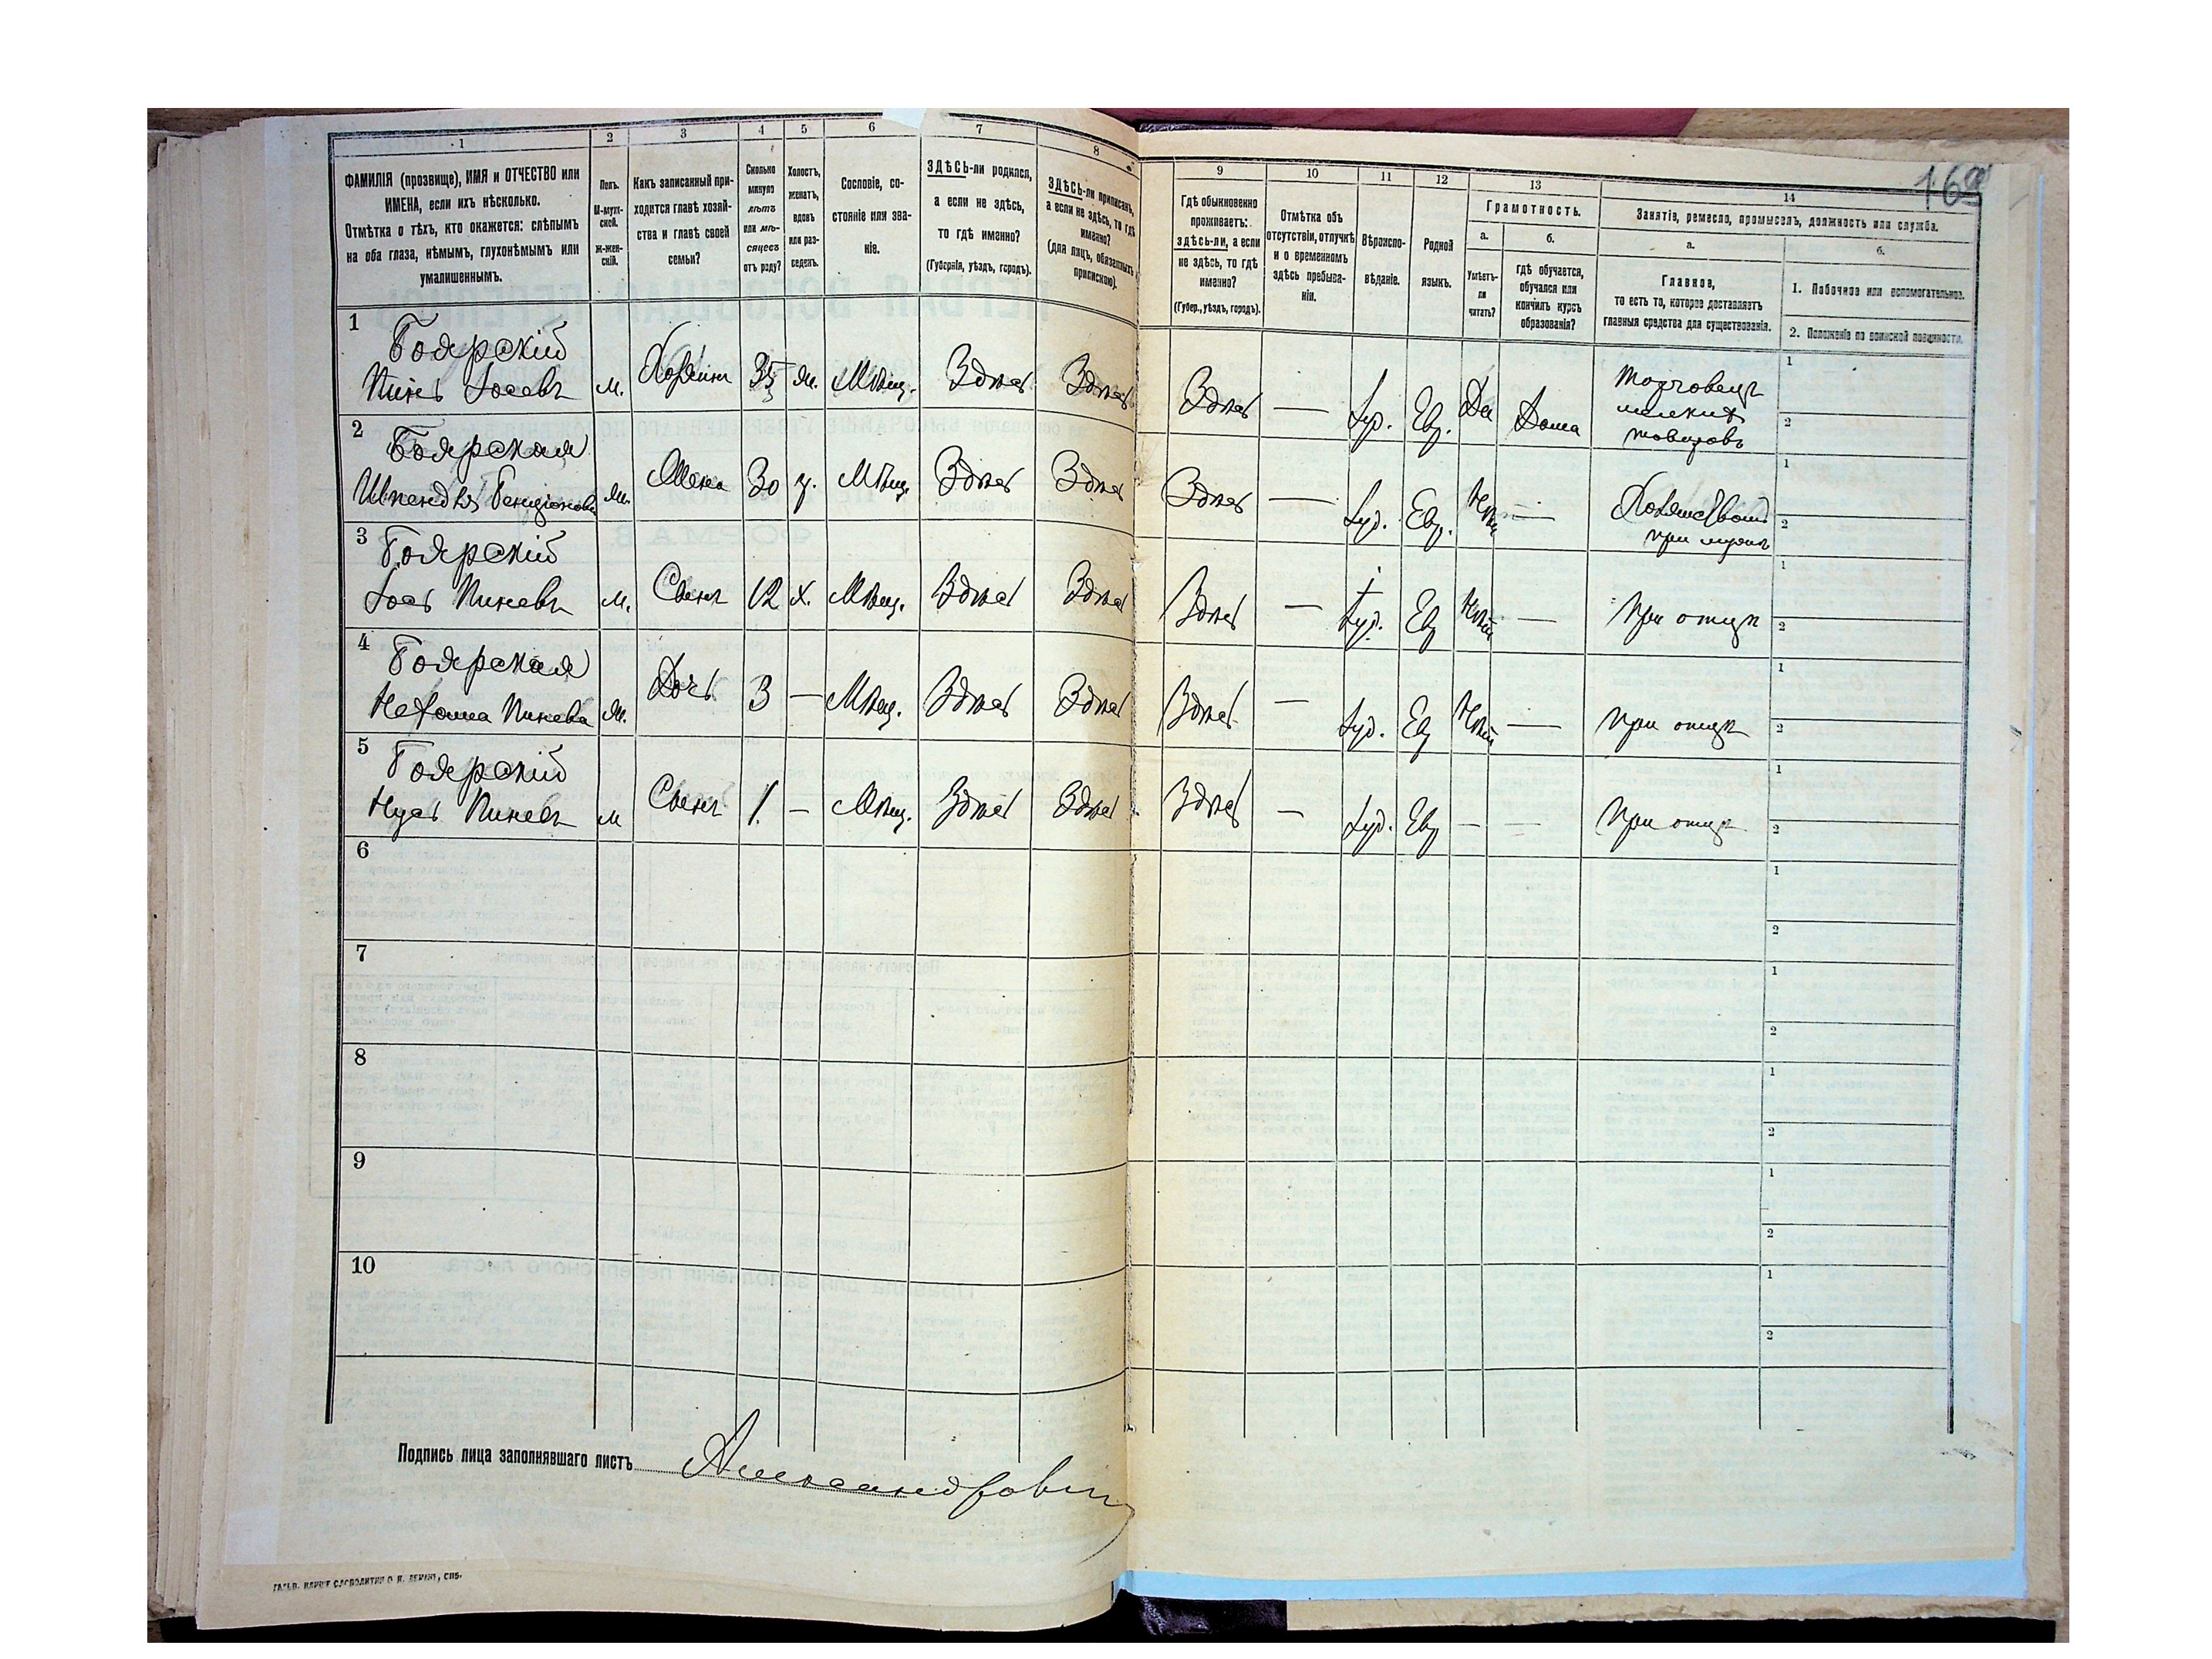 1 2 3 4 5 6 7 8 9 10 11 12 13 14
ФАМИЛІЯ (прозвище), ИМЯ и ОТЧЕСТВО или
ИМЕНА, если ихъ нѣсколько.
Отмѣтка о тѣхъ, кто окажется: слѣпымъ
на оба глаза, нѣмымъ, глухонѣмымъ или
умалишеннымъ.
Полъ.
М-муж-
ской.
Ж-жен-
скій.
Какъ записанный при-
ходится главѣ хозяй-
ства и главѣ своей
семьи?
Сколько
минуло
лѣтъ
или мѣ-
сяцевъ
отъ роду?
Холостъ,
женатъ,
вдовъ
или раз-
веденъ.
Сословіе, со-
стояніе или зва-
ніе.
ЗДѢСЬ-ли родился,
а если не здѣсь,
то гдѣ именно?
(Губернія, уѣздъ, городъ).
ЗДѢСЬ-ли приписанъ,
а если не здѣсь, то гдѣ
именно?
(для лицъ, обязанныхъ
припискою).
Гдѣ обыкновенно
проживаетъ:
здѣсь-ли, а если
не здѣсь, то гдѣ
именно?
(Губер., уѣздъ, городъ).
Отмѣтка объ
отсутствіи, отлучкѣ
и о временномъ
здѣсь пребыва-
ніи.
Вѣроиспо-
вѣданіе.
Родной
языкъ.
Грамотность.
а.
Умѣетъ-
ли
читать?
б.
гдѣ обучается,
обучался или
кончилъ курсъ
образованія?
Занятіе, ремесло, промыселъ, должность или служба.
а.
Главное,
то есть то, которое доставляетъ
главныя средства для существованія.
б.
1. Побочное или вспомогательное.
2. Положеніе по воинской повинности.
1 Боярскій
Пинь Іосевъ м. Хозяинъ 35 ж. Мѣщ. Здѣсь Здѣсь Здѣсь — Іуд. Евр. Да Дома Торговецъ
мелкихъ
товаровъ
1
2
2 Боярская
ж. Жена 30 з. Мѣщ. Здѣсь Здѣсь Здѣсь — Іуд. Евр. Нѣтъ —
при мужѣ
1
2
3 Боярскій
Іось Пиневъ м. Сынъ 12 х. Мѣщ. Здѣсь Здѣсь Здѣсь — Іуд. Евр Нѣтъ — При отцѣ
1
2
4 Боярская
Нехама Пинева ж. Дочь 3 — Мѣщ. Здѣсь Здѣсь Здѣсь — Іуд. Евр Нѣтъ — При отцѣ
1
2
5 Боярскій
Пиневъ м Сынъ 1. — Мѣщ. Здѣсь Здѣсь Здѣсь — Іуд. Евр — — При отцѣ
1
2
6
1
2
7
1
2
8
1
2
9
1
2
10
1
2
Подпись лица заполнявшаго листъ Александрович